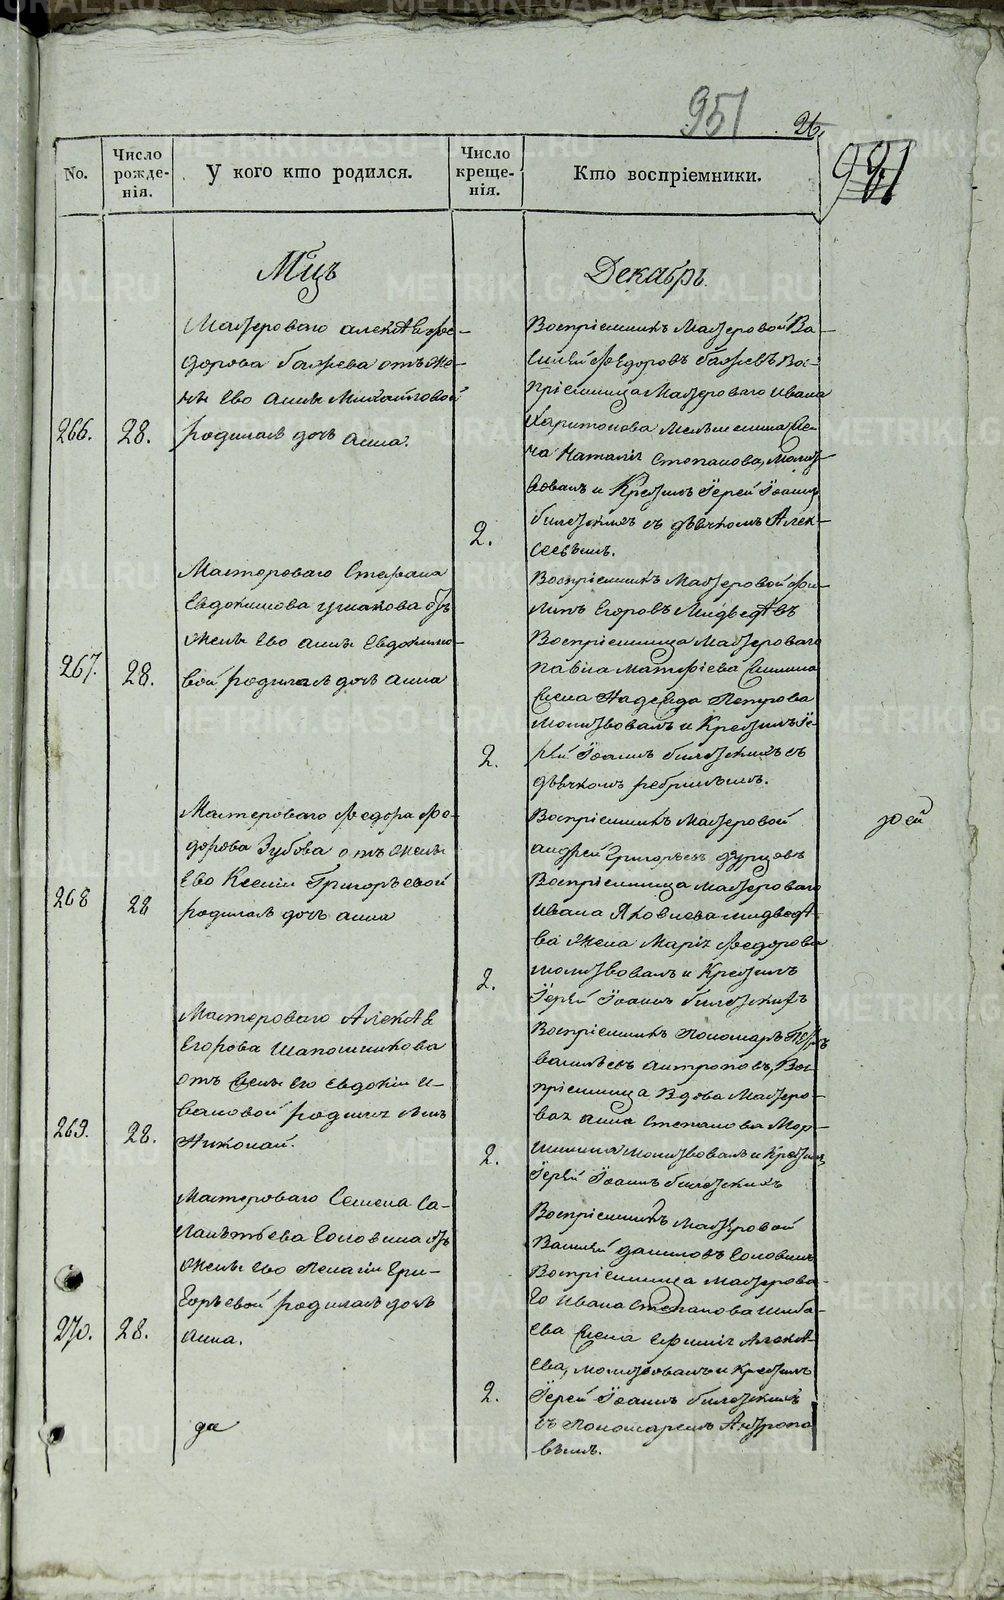 951
26.
991
No.
Число рожденія.
У кого кто родился.
Число крещенія.
Кто воспріемники.
Мцъ
Декабрь.
266.
28.
Мастероваго Алексѣя Фео-
дорова Бажева отъ же-
ны Ево Анны Михайловой
родилась дочь Анна.
2.
Воспріемникъ Мастеровой Ва-
силей Феодоровъ Бажевъ Вос-
пріемница Мастероваго Ивана
Харитонова жена
Наталія Степанова, Молит-
вовалъ и Крестилъ Іерей Іоаннъ
съ дьячкомъ Алек-
сеевымъ.
267.
28.
Мастероваго Стефана
Евдокимова Ушакова отъ
жены Ево Анны Евдокимо-
вой родилась дочь Анна
2.
Воспріемникъ Мастеровой Фи-
липъ Егоровъ Мидведевъ
Воспріемница Мастероваго
Павла Матфіева
жена Надежда Петрова
молитвовалъ и Крестилъ Іе-
рей Іоаннъ съ
дьячкомъ
268
28
Мастероваго Феодора Фео-
дорова Зубова отъ жены
Ево Ксеніи Григорьевой
родилась дочь Анна
2.
Воспріемникъ Мастеровой
Андрей Григорьевъ
Воспріемница Мастероваго
Ивана Яковлева Мидведе-
ва жена Марія Феодорова
молитвовалъ и Крестилъ
Іерей Іоаннъ
269.
28.
Мастероваго Алексѣя
Егорова Шапошникова
отъ жены его Евдокіи И-
вановой родился сынъ
Николай.
2.
Воспріемникъ Пономарь Петръ
Васильевъ Антроповъ, Вос-
пріемница Вдова Мастеро-
вая Анна Степанова
молитвовалъ и Крестилъ
Іерей Іоаннъ
270.
28.
Мастероваго Семена Са-
Головина отъ
жены Ево Пелагіи Гри-
горьевой родилась дочь
Анна.
2.
Воспріемникъ Мастеровой
Василей Даниловъ Головинъ
Воспріемница Мастерова-
го Ивана Степанова
жена Ефимія Алексѣ-
ева, молитвовалъ и Крестилъ
Іерей Іоаннъ
съ Пономаремъ Антропо-
вымъ.
да